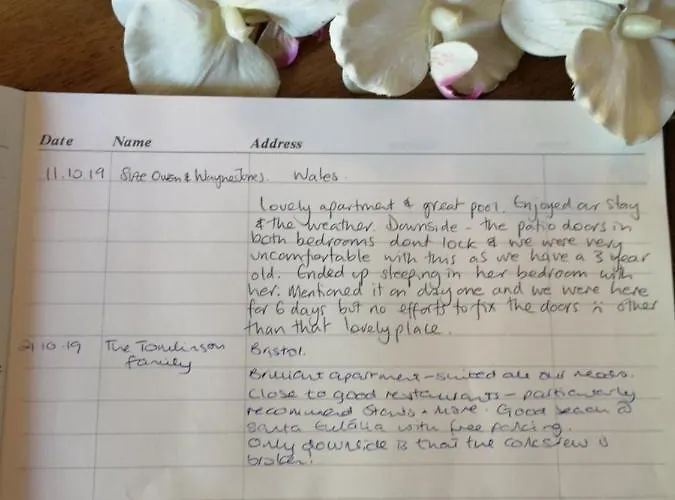 Date Name Address
11.10.19 Sue Owen & Wayne Jones. Wales.
Lovely apartment & great pool. Enjoyed our stay
& the weather. Downside - the patio doors in
both bedrooms dont lock & we were very
uncomfortable with this as we have a 3 year
old. Ended up sleeping in her bedroom with
her. Mentioned it on day one and we were here
for 6 days but no efforts to fix the doors :( other
than that lovely place.
21.10.19 The Tomlinson Bristol.
family
Brilliant apartment - suited all our needs.
Close to good restaurants - particularly
recommend & More. Good beach @
Santa Eulália with free parking.
Only downside is that the corkscrew is
broken!